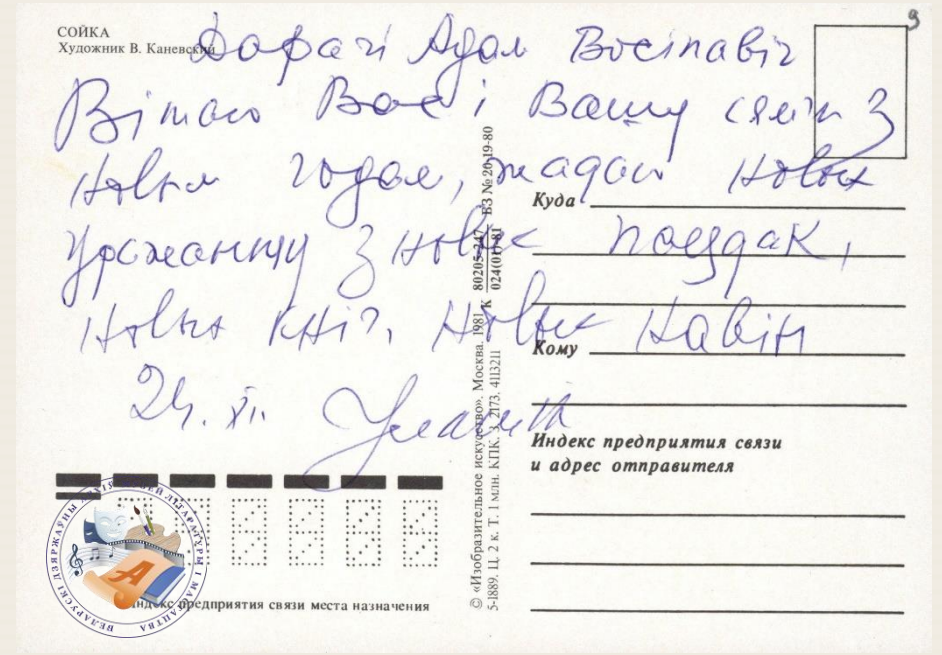 СОЙКА
Художник В. Каневский
Дарагі Адам Восіпавіч
Вітаю Вас і Вашу сям'ю з
Новым годам, жадаю новых
уражанняў з новых паездак,
новых кніг, новых навін
24.XII.
9
Куда
Кому
Индекс предприятия связи
и адрес отправителя
© «Изобразительное искусство». Москва. 1981. К 80205-247 ВЗ № 20-19-80
024(01)-81
5-1889. Ц. 2 к. Т. 1 млн. КПК. З. 2173. 4113211
Индекс предприятия связи места назначения
БЕЛАРУСКІ ДЗЯРЖАЎНЫ АРХІЎ-МУЗЕЙ ЛІТАРАТУРЫ І МАСТАЦТВА
А